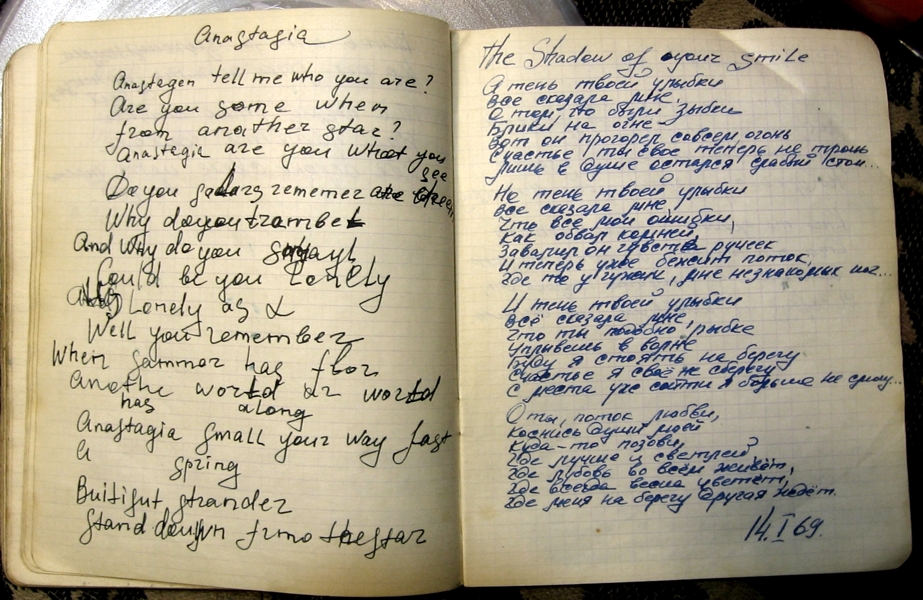 Anastasia
Anastagen tell me who you are?
Are you some when
from anather star?
Anastagia are you what you
see
Do you rememer
Why do you trambet
And Why do you
Could be you Lonely
Lonely as I
Well you remember
When sammer has flor
Anothe world or world
has along
Anastagia small your way fast
spring
Buitigut strander
Stand down frmo the star
The Shadow of your smile
А тень твоей улыбки
Все сказала мне,
О том, что были зыбки
Блики на огне
Вот он прогорел совсем огонь
Счастье, ты свое теперь не тронь
Лишь в душе остался слабый стон...
Но тень твоей улыбки
Все сказала мне,
Что все мои ошибки,
Как обвал камней,
Завалил он чувства ручеек
И теперь иное бежит поток,
Где-то у чужих, мне незнакомых ног...
И тень твоей улыбки
Всё сказала мне,
Что ты подобно рыбке
Уплывешь в волне
Буду я стоять на берегу
Счастье я своё не сберегу
С места уже сойти я больше не смогу...
О ты, поток любви,
Коснись души моей
Куда-то позови,
Где лучше и светлей?
Где любовь во всём живёт,
Где всегда весна цветёт,
Где меня на берегу другая ждёт.
14.I 69.